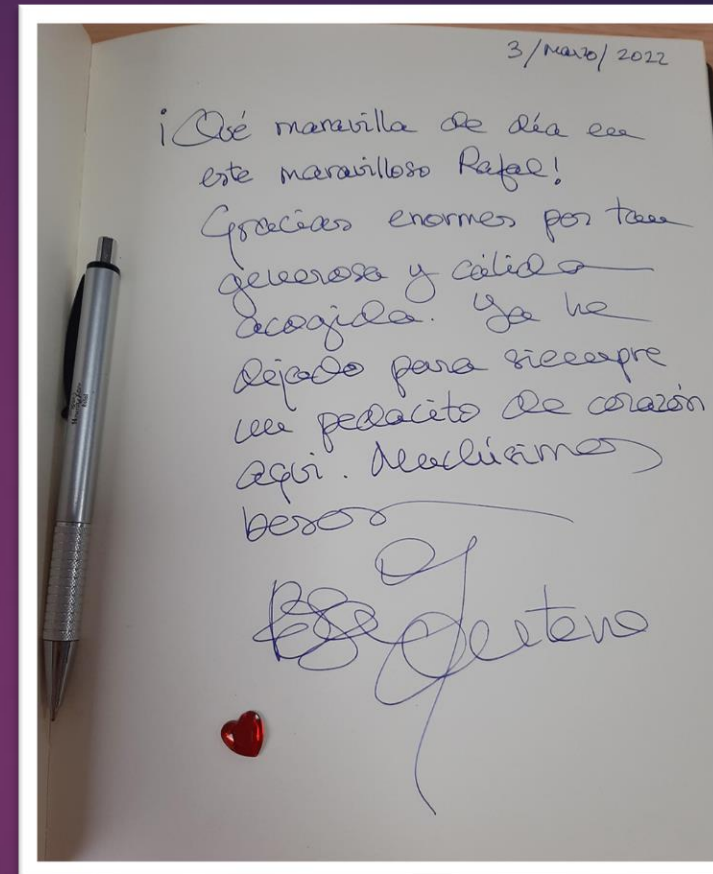 3/Marzo/2022
¡Qué maravilla de día en
este maravilloso Rafael!
Gracias enormes por tan
generosa y cálida
acogida. Ya he
dejado para siempre
un pedacito de corazón
aquí. Muchísimos
besos